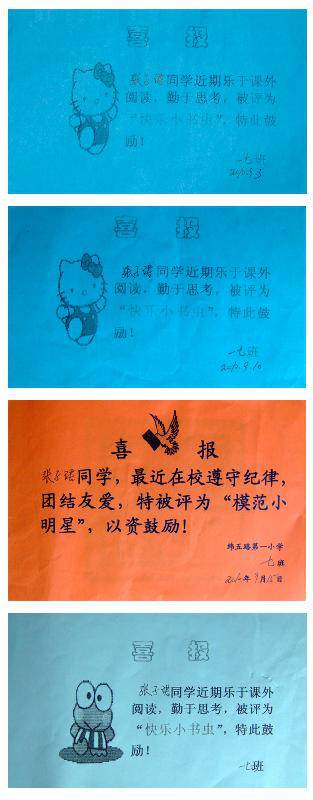 喜 报
张子诺同学近期乐于课外
阅读，勤于思考，被评为
“快乐小书虫”，特此鼓
励！
一七班
2010.9.3
喜 报
张子诺同学近期乐于课外
阅读，勤于思考，被评为
“快乐小书虫”，特此鼓
励！
一七班
2010.9.10
喜 报
张子诺同学，最近在校遵守纪律，
团结友爱，特被评为“模范小
明星”，以资鼓励！
纬五路第一小学
一七班
2010年9月15日
喜 报
张子诺同学近期乐于课外
阅读，勤于思考，被评为
“快乐小书虫”，特此鼓
励！
一七班